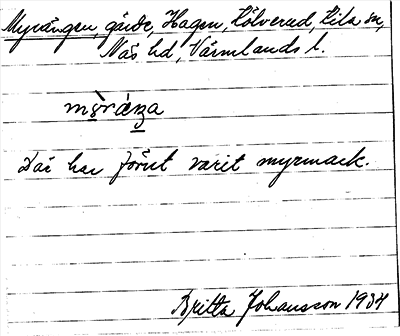 Myrängen, gärde, Hagen, Kölverud, Kila sn,
Näs hd, Värmlands l.
Där har förut varit myrmark.
Britta Johansson 1934